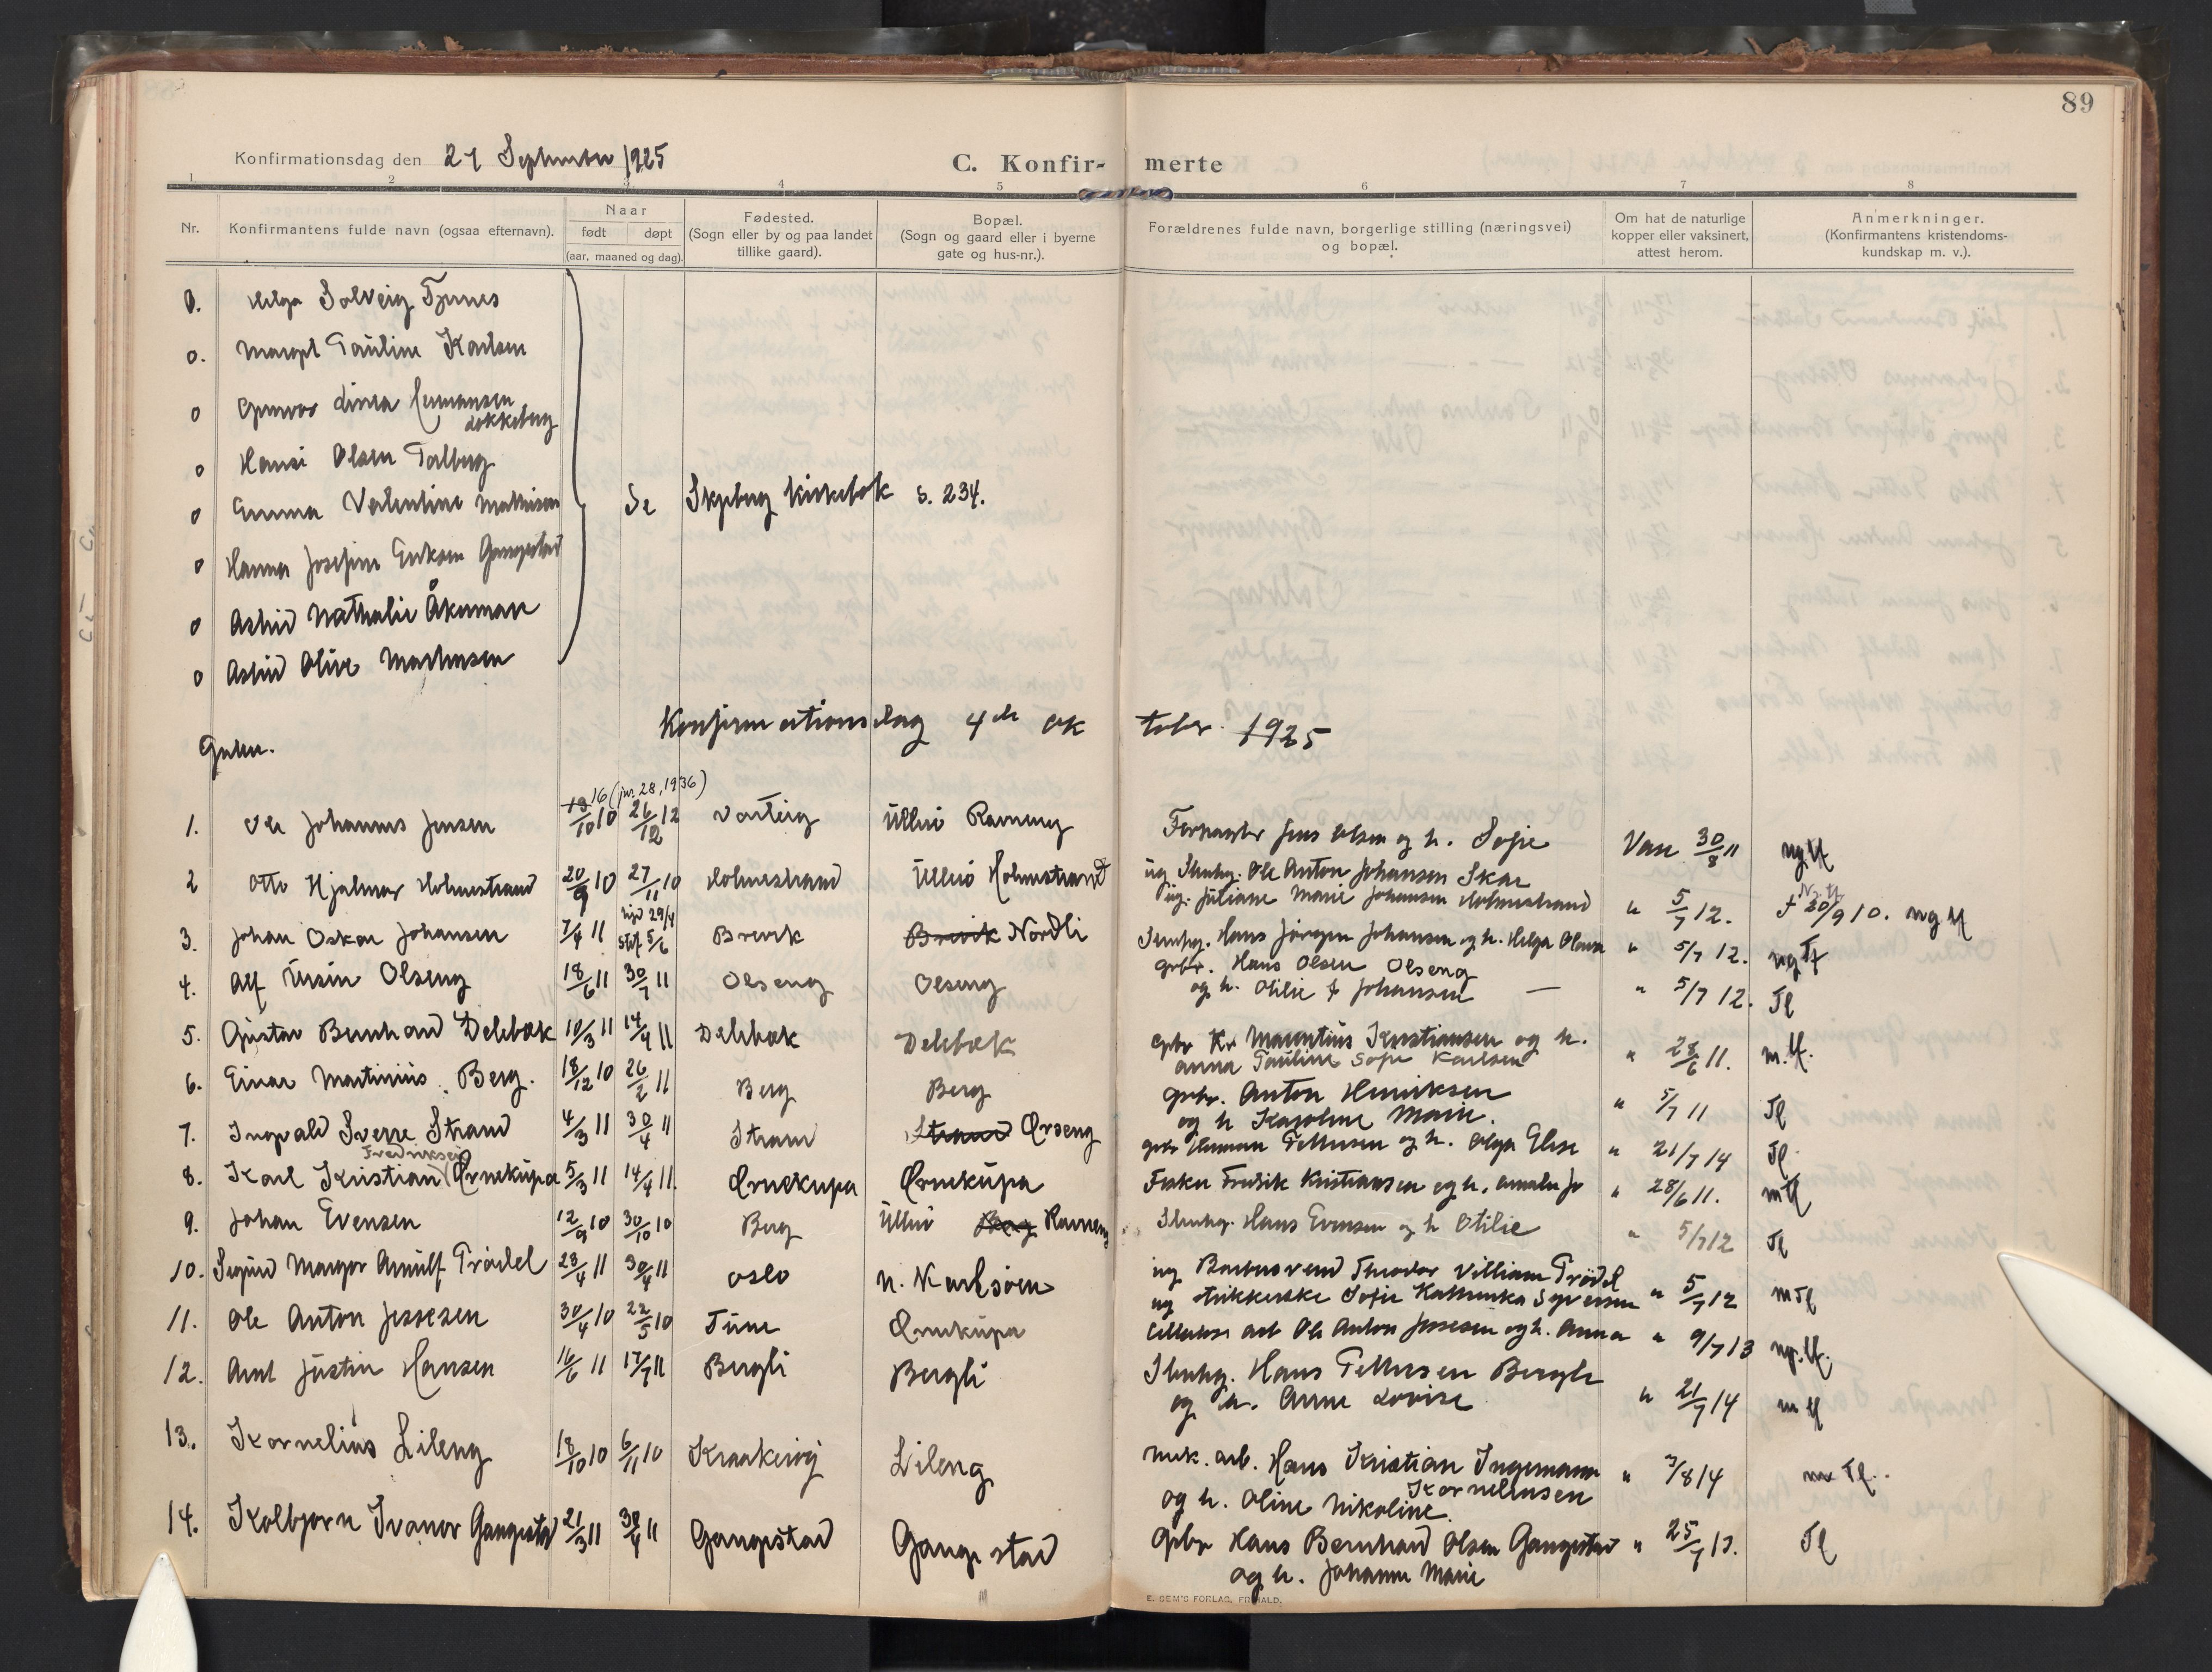 89
Konfirmationsdag den 27 September 1925
C. Konfir- merte
1 2 3 4 5 6 7 8
Nr. Konfirmantens fulde navn (ogsaa efternavn). Naar født døpt (aar, maaned og dag). Fødested. (Sogn eller by og paa landet tillike gaard). Bopæl. (Sogn og gaard eller i byerne gate og hus-nr.). Forældrenes fulde navn, borgerlige stilling (næringsvei) og bopæl. Om hat de naturlige kopper eller vaksinert, attest herom. Anmerkninger. (Konfirmantens kristendoms- kundskap m. v.).
0. Helga Solveig
0. Margit Pauline Karlsen
0 Gunvor Linea Hermansen Løkkeberg
0 Hansi Olsen Talberg
0 Emma Valentine Mathisen
Se Skjeberg kirkebok s. 234.
0 Hanna Josefine Eriksen Gangestad
0 Astrid Nathalie Åkerman
0 Astrid Olive Mathisen
Konfirmationsdag 4de oktober 1925
Gutter.
16 (jnr. 28, 1936)
1. Ole Johannes Jensen 19/10 10 26/12 12 Varteig Ullerø Ravneng Forpagter Jens Olsen og h. Sofie Vacc 30/8 11
2 Otto Hjalmar Holmestrand 20/9 10 27/11 10 Holmestrand Ullerø Holmestrand ug Ole Anton Johansen Skar
ug. Juliane Marie Johansen Holmestrand " 5/7 12. f 20/9 10.
3. Johan Oskar Johansen 7/4 11 29/4 stf 5/6 Brevik Brevik Nordli Hans Jørgen Johansen og h. Helga " 5/7 12.
4. Alf Ursin Olseng 18/6 11 30/7 11 Olseng Olseng grbr. Hans Olsen Olseng
og h. Otilie Johansen — " 5/7 12. Tf
5. Gustav Bernhard Delebæk 10/3 11 14/4 11 Delebæk Delebæk grbr Kr Mauritius Kristiansen og h.
Anna Pauline Sofie Karlsen " 28/6 11.
6. Einar Martinius Berg. 18/12 10 26/2 11 Berg Berg grbr. Anton Henriksen
og h Karoline Marie. " 5/7 11 Tf
7. Ingvald Sverre Strand 4/3 11 30/4 11 Strand Strand Ørseng grbr Herman Pettersen og h. Olga Elise " 21/7 14 Tf
Fredriksen
8. Karl Kristian Ørnekupa 5/3 11 14/4 11. Ørnekupa Ørnekupa Fisker Fredrik Kristiansen og h. " 28/6 11.
9. Johan Evensen 12/9 10 30/10 10 Berg Ullerø Berg Ravneng Hans Evensen og h Otilie " 5/7 12 Tf
10. Sigurd Margor Arnulf Trödel 23/4 11 30/4 11 Oslo N. Karlsøen ug Barbersvend Theodor Villiam Trödel
ug strikkerske Sofie Kathinka Syversen " 5/7 12
11. Ole Anton Jessesen 30/4 10 22/5 10 Tune Ørnekupa Cellulose arb Ole Anton Jessesen og h. Anna " 9/7 13
12. Arnt Justin Hansen 16/6 11 17/7 11 Bergli Bergli Hans Pettersen Bergli
og h. Anne Lovise " 21/7 14
13. Kornelius Lileng 18/10 10 6/11 10 Kraakerøy Lileng mek. arb. Hans Kristian Ingemann
Kornelinsen
og h. Oline Nikoline. " 3/8 14
14. Kolbjørn Ivanor Gangestad 21/3 11 30/4 11 Gangestad Gangestad Grbr Hans Bernhard Olsen Gangestad
og h. Johanne Marie " 25/7 13. Tf
E. SEM'S FORLAG, FR.HALD.